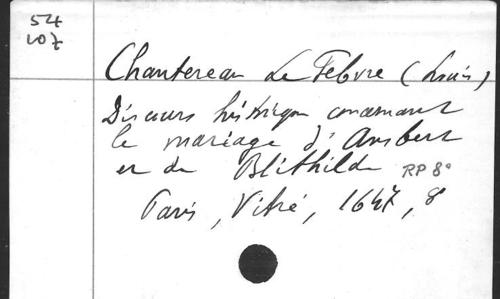 54
207
Chantereau Le Febvre (Louis)
Discours historique concernant
le mariage d'Ansbert
et de Blithilde RP 8°
Paris, Vitré, 1647, 8°